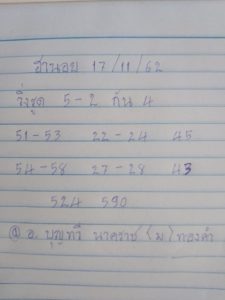 ฮานอย 17/11/62
วิ่งชุด 5-2 กัน 4
51-53 22-24 45
54-58 27-28 43
524 590
@ อ. บุญทวี นาคราช (ม) ทองคำ